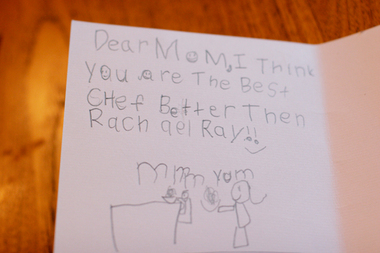 Dear MoM, I Think
You are The Best
CHef Better Then
Rachael Ray!!
Mmm yum